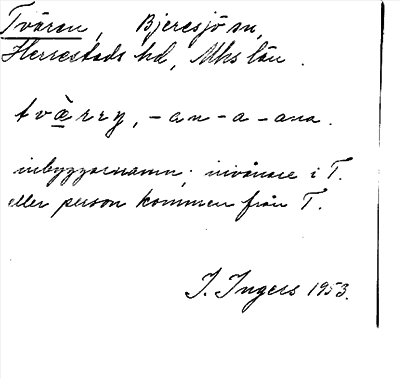 Tvären, Bjeresjö sn,
Herrestads hd, Mhs län.
tvä̀rry, -an -a -ana.
inbyggarnamn; invånare i T.
eller person kommen från T.
I. Ingers 1953.